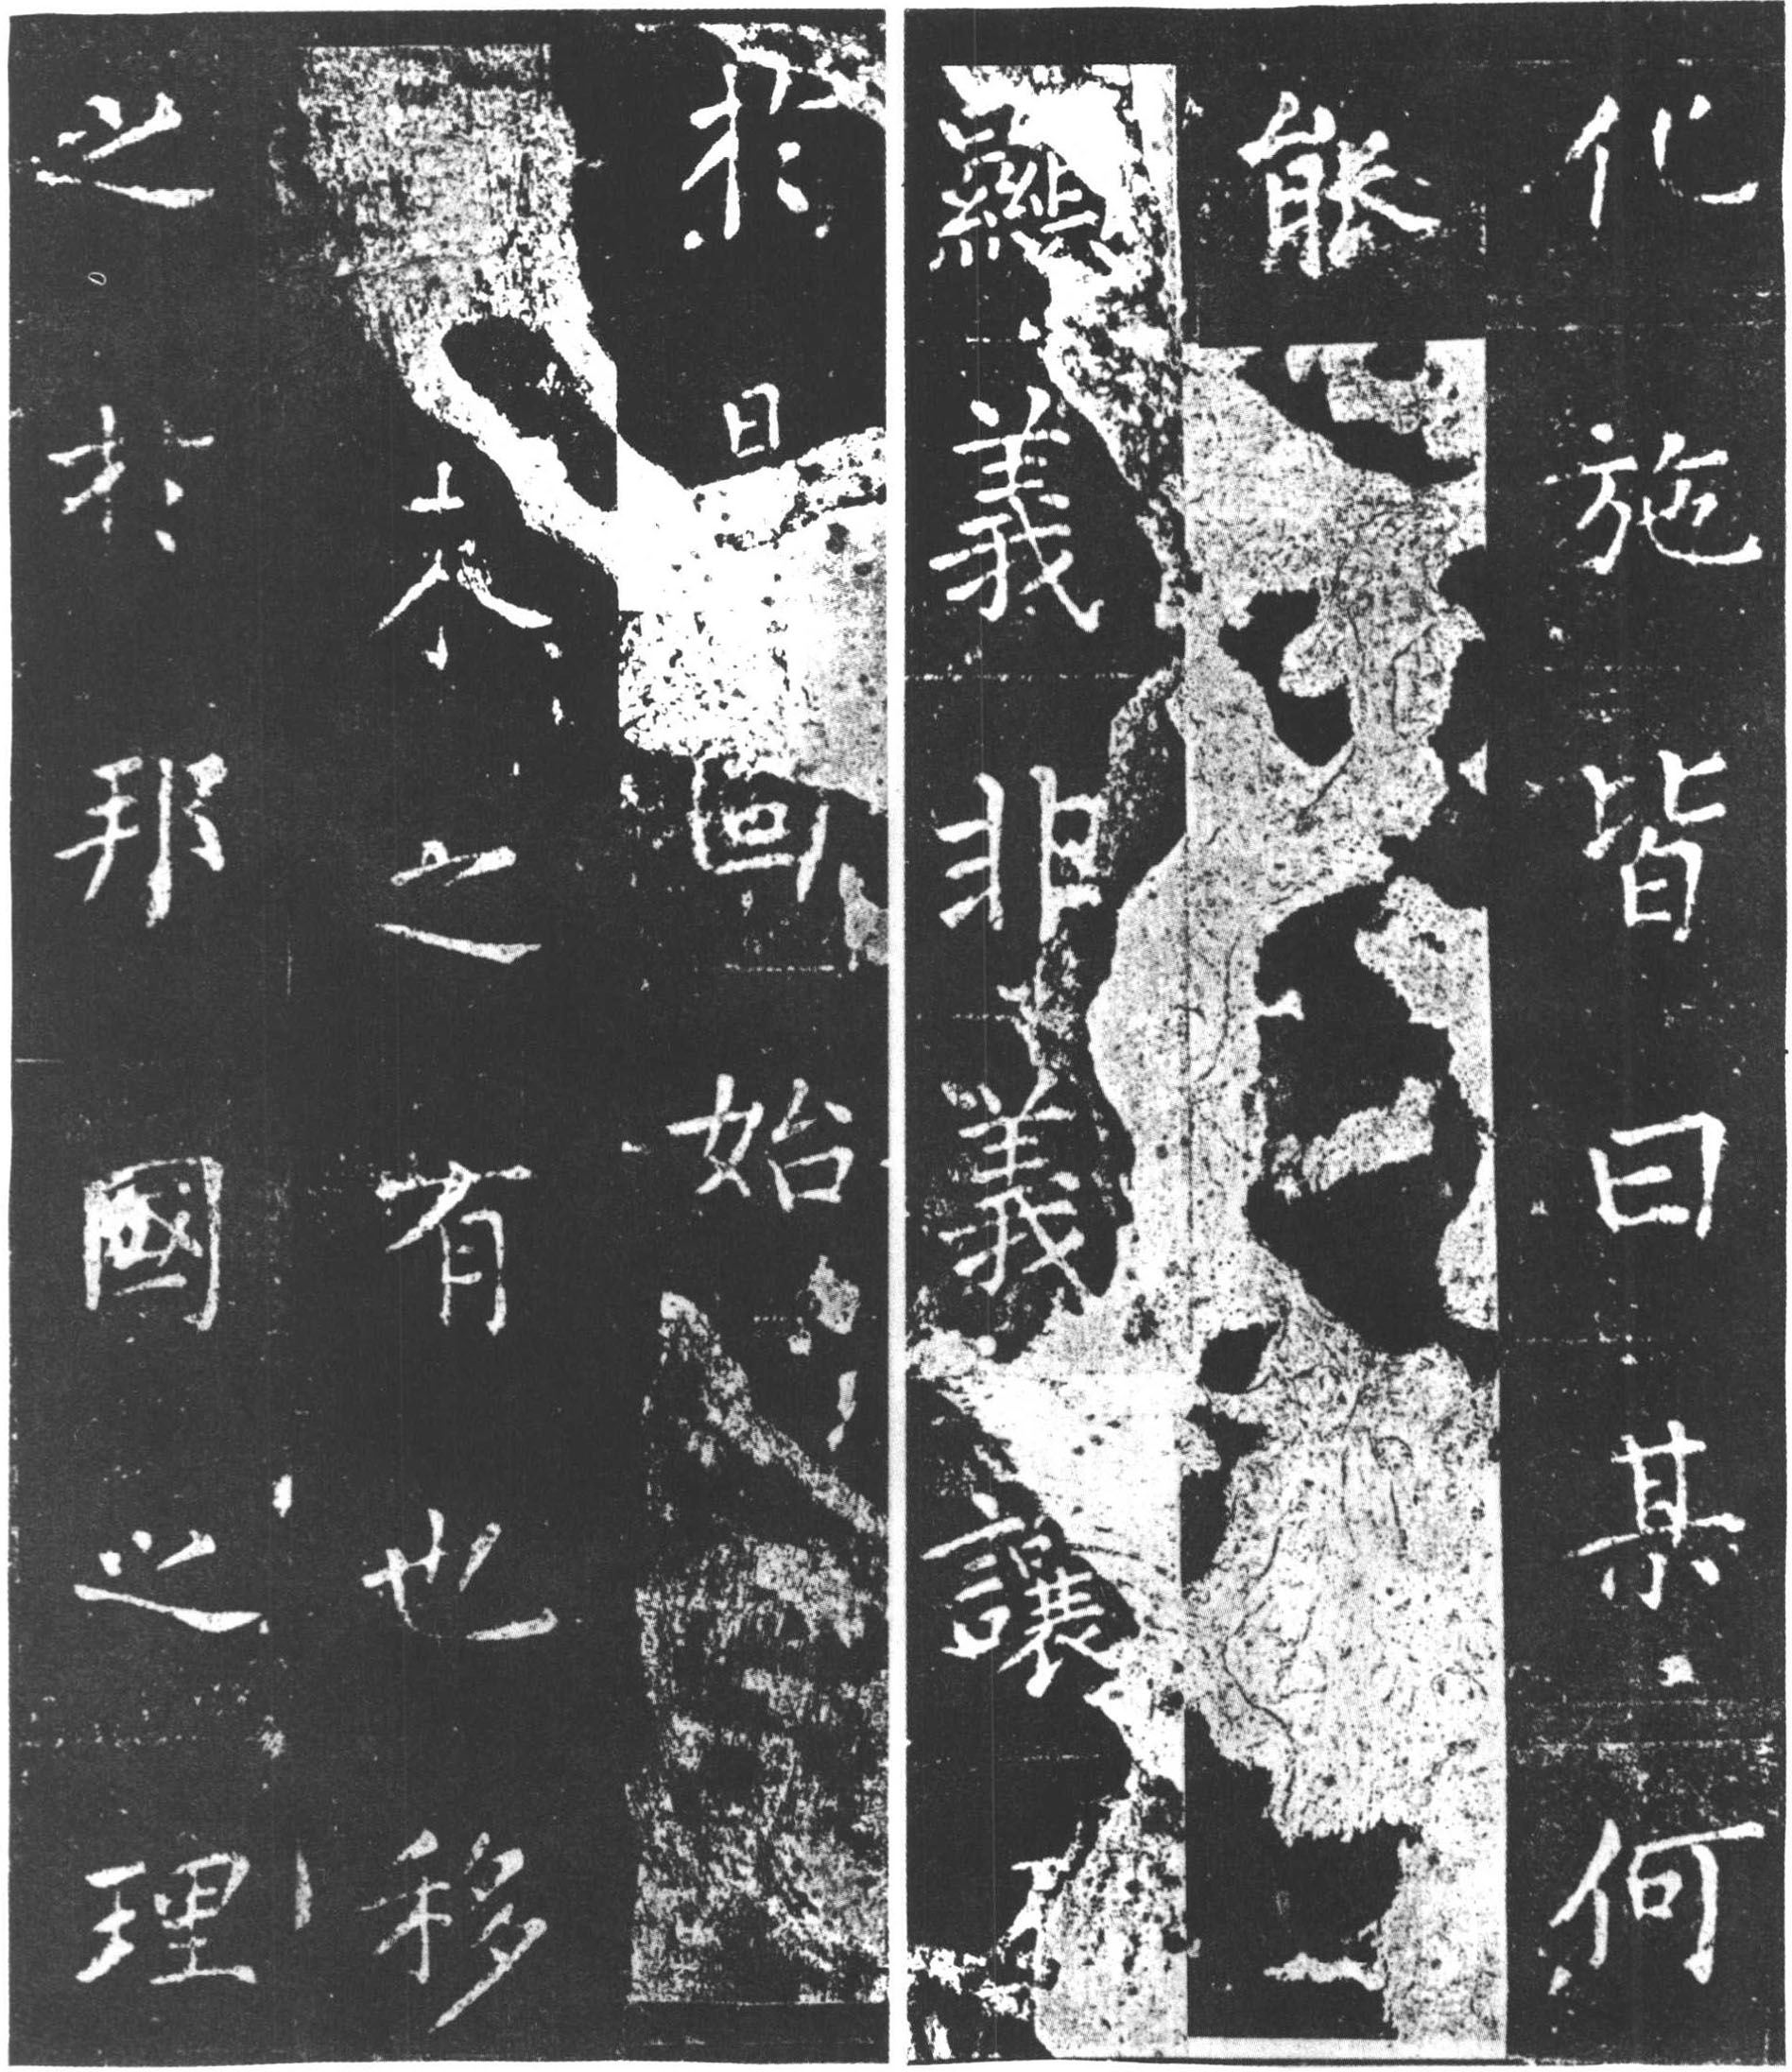 化施皆曰某何
能
義非義讓
於始
之有也移
之於邦國之理